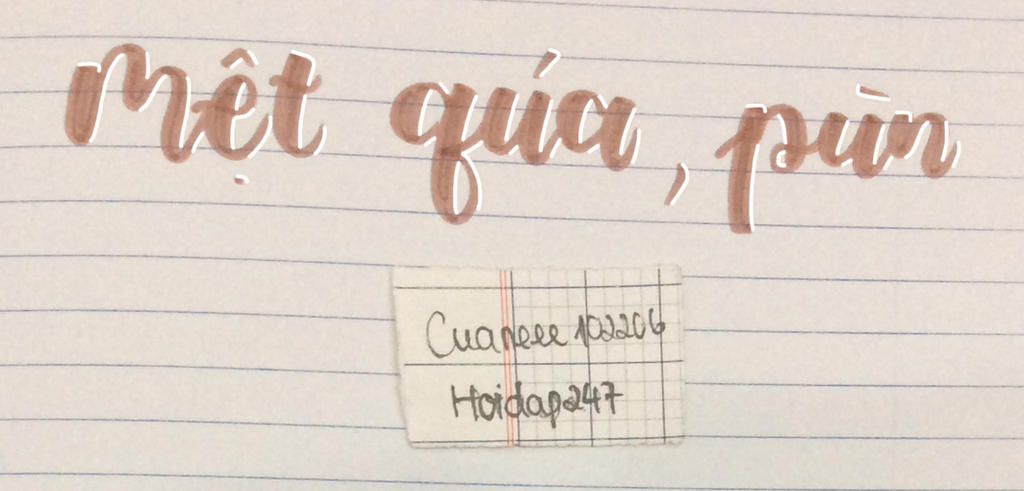 Mệt qúa, pùn
Cuaneee102206
Hoidap247